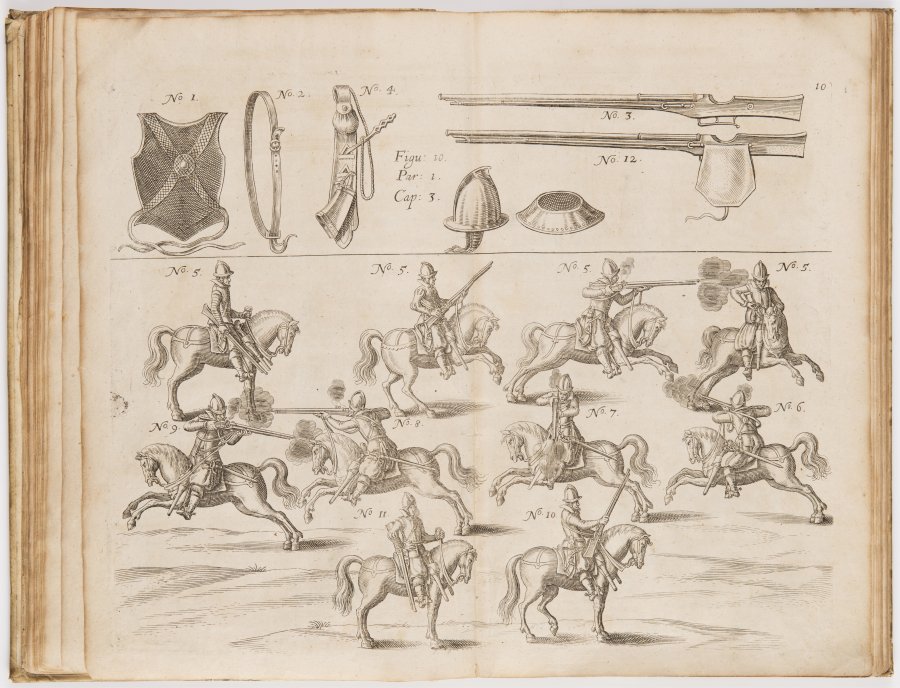 10
No 1.
No 2.
No 4.
No 3.
Figu: 10.
Par: 1.
Cap: 3.
No 12.
No 5.
No 5.
No 5.
No 5.
No 9.
No 8.
No 7.
No 6.
No 11
No 10